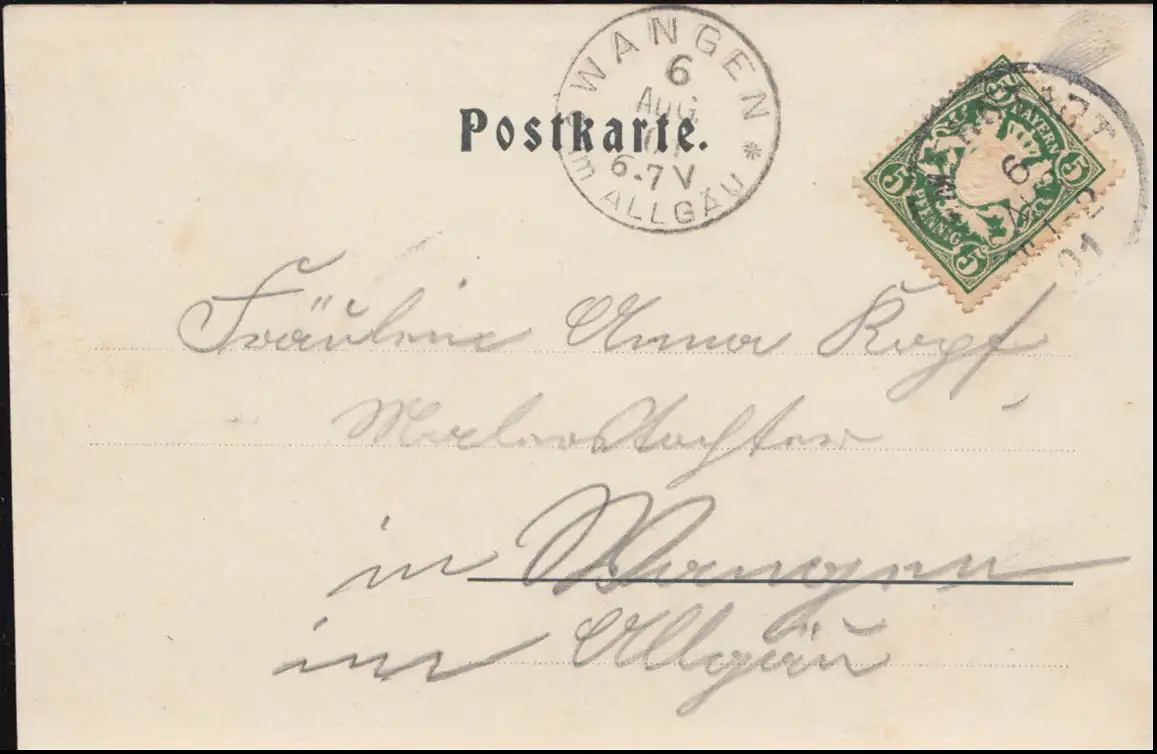 Postkarte.
WANGEN
6
AUG
01
6-7 V
im ALLGÄU *
BAYERN
5 5 5 5
PFENNIG
6
01
Fräulein Anna Kopf
Malerstochter
in Wangen
im Allgäu